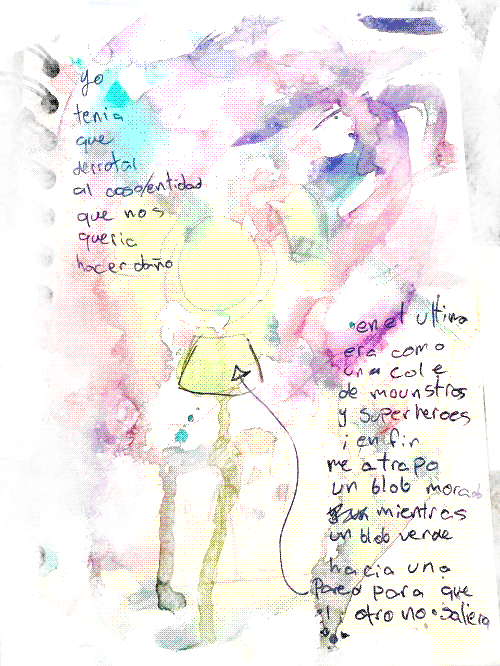 yo
tenia
que
derrotar
al coso/entidad
que nos
queria
hacer daño
en el ultimo
era como
una cole
de mounstros
y superheroes
¡en fin
me atrapo
un blob morado
mientras
un blob verde
hacia una
Pared para que
otro no saliera